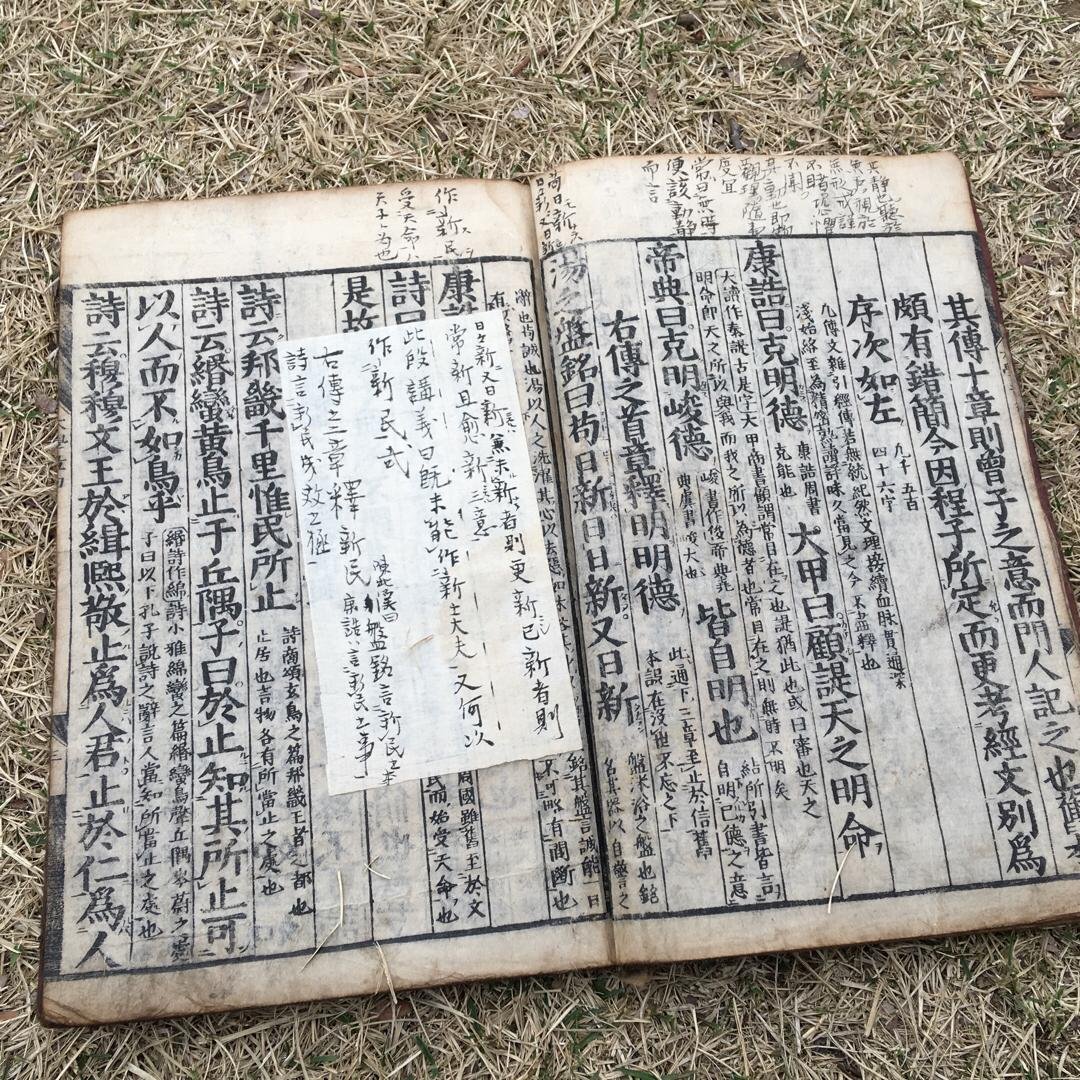 其靜也聽於
無聲視於
無形戒謹
不睹恐懼
不聞
其動也即物
觀理隨事
度宜
常目無時
便該動靜
而言
其傳十章則曾子之意而門人記之也舊本
頗有錯簡今因程子所定而更考經文別爲
序次如左
凡千五百
四十六字
凡傳文雜引經傳若無統紀然文理接續血脉貫通深
淺始終至爲精密熟讀詳味久當見之今不盡釋也
康誥曰克明德
克能也
康誥周書
大甲曰顧諟天之明命
大讀作泰諟古是字大甲商書顧謂常目在之也諟猶此也或曰審也天之
明命即天之所以與我而我之所以爲德者也常目在之則無時不明矣
帝典曰克明峻德
峻書作俊帝典堯
典虞書峻大也
皆自明也
結所引書皆言
自明己德之意
右傳之首章釋明明德
此通下三章至止於信舊
本誤在沒世不忘之下
湯之盤銘曰苟日新日日新又日新
盤沐浴之盤也銘
名其器以自警之
作新民
受天命
天子之爲也
康誥
詩曰
周國雖舊至於文
民而始受天命也
是故
日日新又日新兼未新者則更新已新者則
常新且愈新二意
此段講義曰既未能作新士大夫又何以
作新民哉
右傳之二章釋新民
盤銘言新民之本
康誥言新民之事
詩言新民成效之極
詩云邦畿千里惟民所止
詩商頌玄鳥之篇邦畿王者之都也
止居也言物各有所當止之處也
詩云緡蠻黃鳥止于丘隅子曰於止知其所止可
以人而不如鳥乎
緡詩作綿詩小雅綿蠻之篇緡蠻鳥聲丘隅岑蔚之處
子曰以下孔子說詩之辭言人當知所當止之處也
詩云穆穆文王於緝熙敬止爲人君止於仁爲人